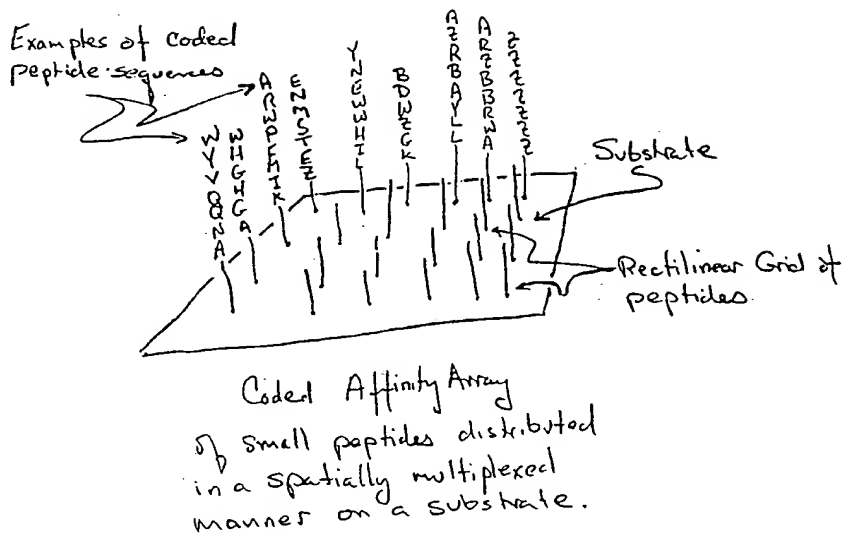 Examples of Coded
peptide sequences
WYVQQNA
WHGHGA
ENMSTEZ
YNEWWHIL
BDWZGK
AZRBAYLL
ARZBBRWA
Substrate
Rectilinear Grid of
peptides.
Coded Affinity Array
of small peptides distributed
in a spatially multiplexed
manner on a substrate.